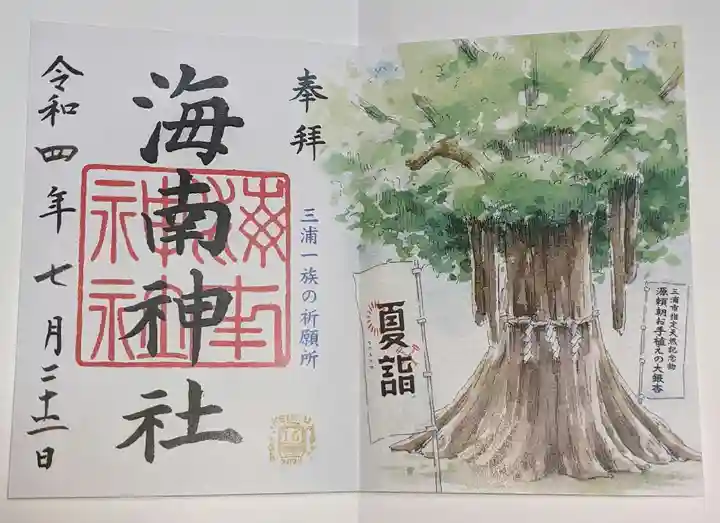 奉拝
三浦一族の祈願所
海南神社
令和四年七月二十二日
夏詣
三浦市指定天然記念物
源頼朝お手植えの大銀杏